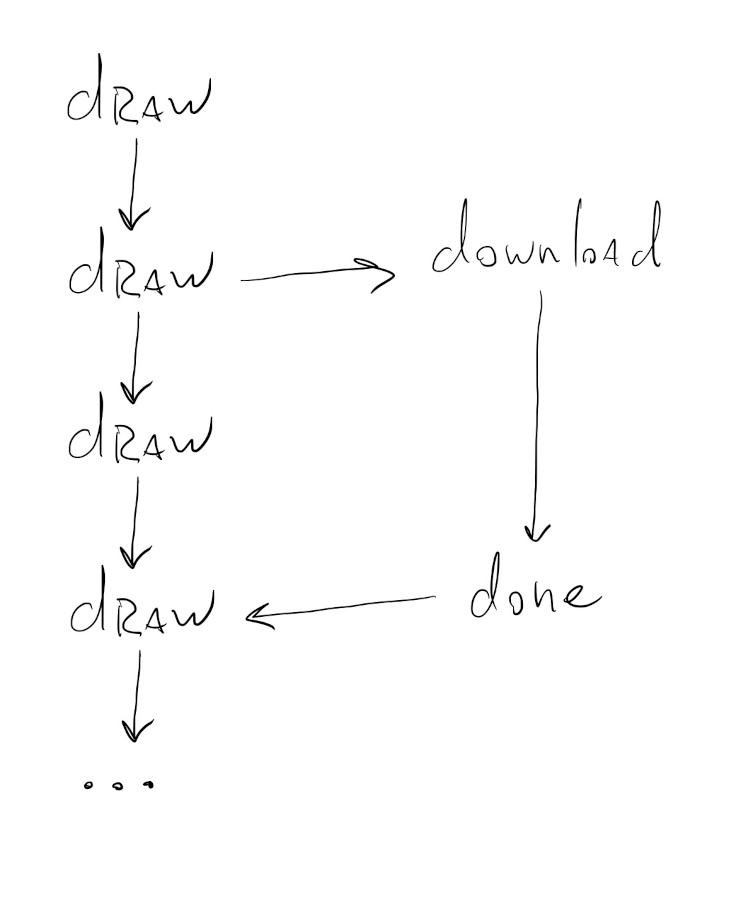 dRAW
dRAW download
dRAW
dRAW done
...